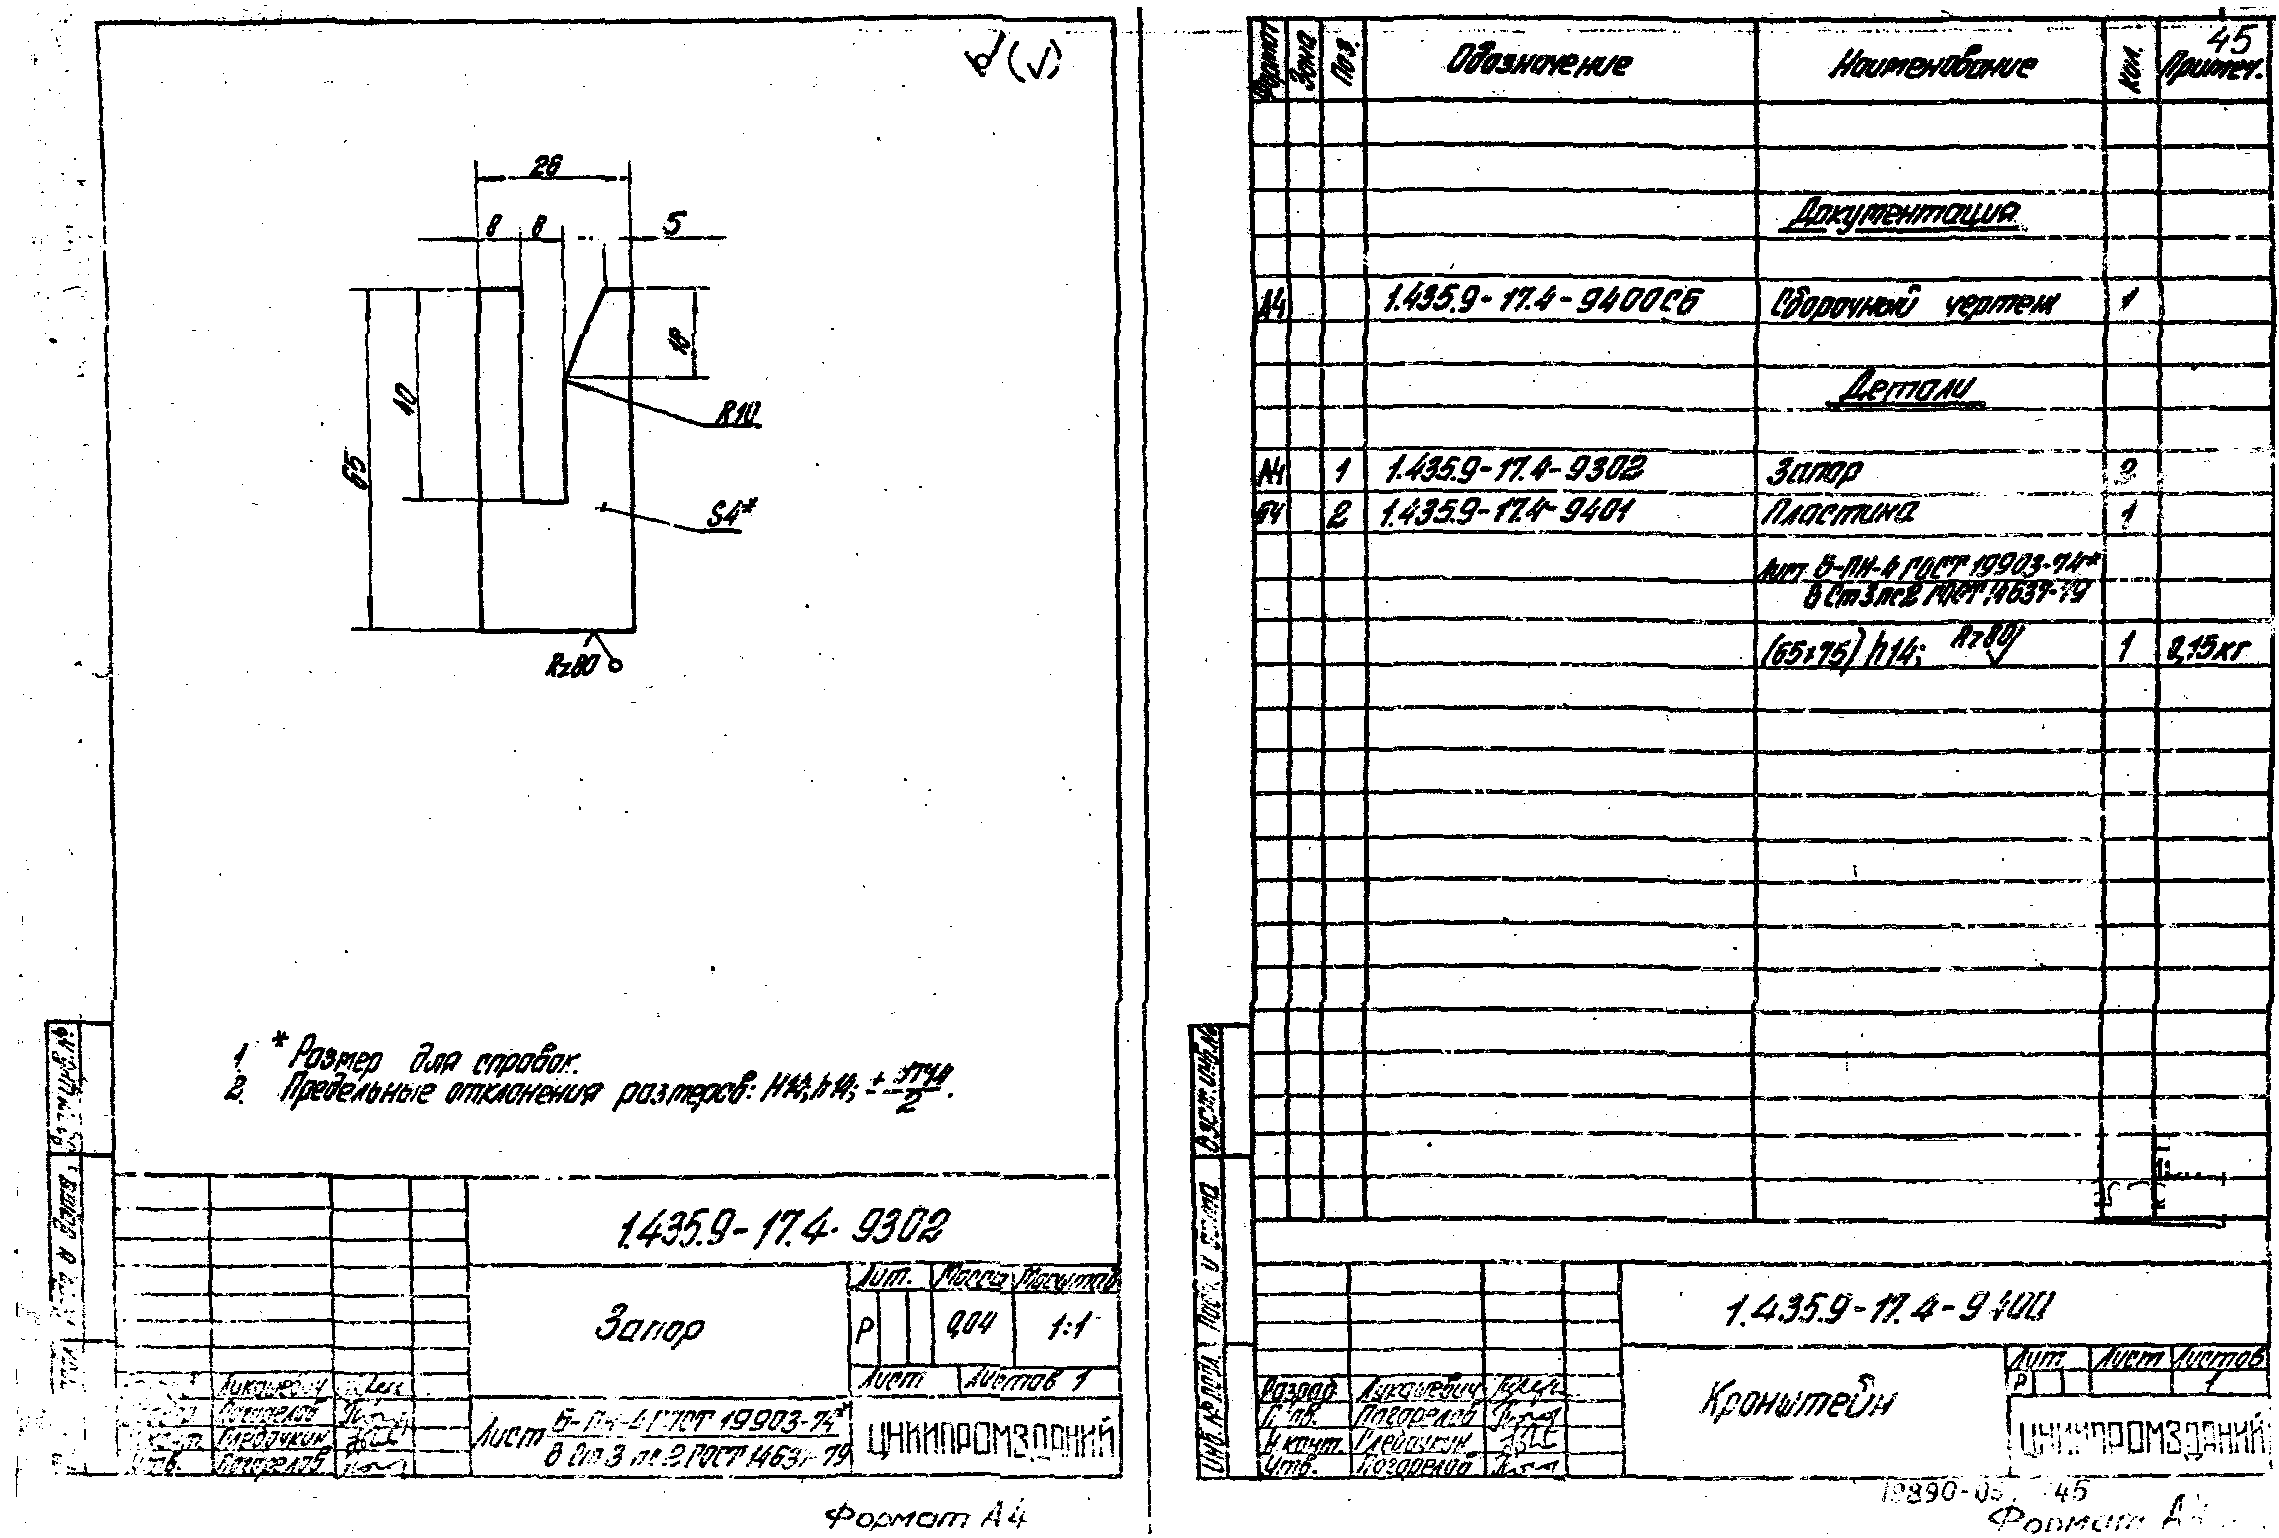 28
8 8 5
65
40
18
R10
S4*
Rz80
1 * Размер для справок.
2. Предельные отклонения размеров: H14; h14; ± IT14/2.
1.435.9-17.4-9302
Запор
Лит. Масса Масштаб
Р 0,04 1:1
Лист Листов 1
Лист Б-ПН-4 ГОСТ 19903-74*
В Ст 3 пс 2 ГОСТ 14637-79
ЦНИИПРОМЗДАНИЙ
Лукашевич
Погорелов
Глебочкин
Утв. Погорелов
Формат А4
45
Формат Зона Поз. Обозначение Наименование Кол. Примеч.
Документация
А4 1.435.9-17.4-9400СБ Сборочный чертеж 1
Детали
А4 1 1.435.9-17.4-9302 Запор 2
БЧ 2 1.435.9-17.4-9401 Пластина 1
Лист Б-ПН-4 ГОСТ 19903-74*
В Ст3пс2 ГОСТ 14637-79
(65×75) h14; Rz80 1 0,15 кг
Взаm. инв. №
Подп. и дата
Инв. № подл.
1.435.9-17.4-9400
Кронштейн
Лит. Лист Листов
Р 1
ЦНИИПРОМЗДАНИЙ
Разраб. Лукашевич
Погорелов
Н.конт. Глебочкин
Утв. Погорелов
45
Формат А4